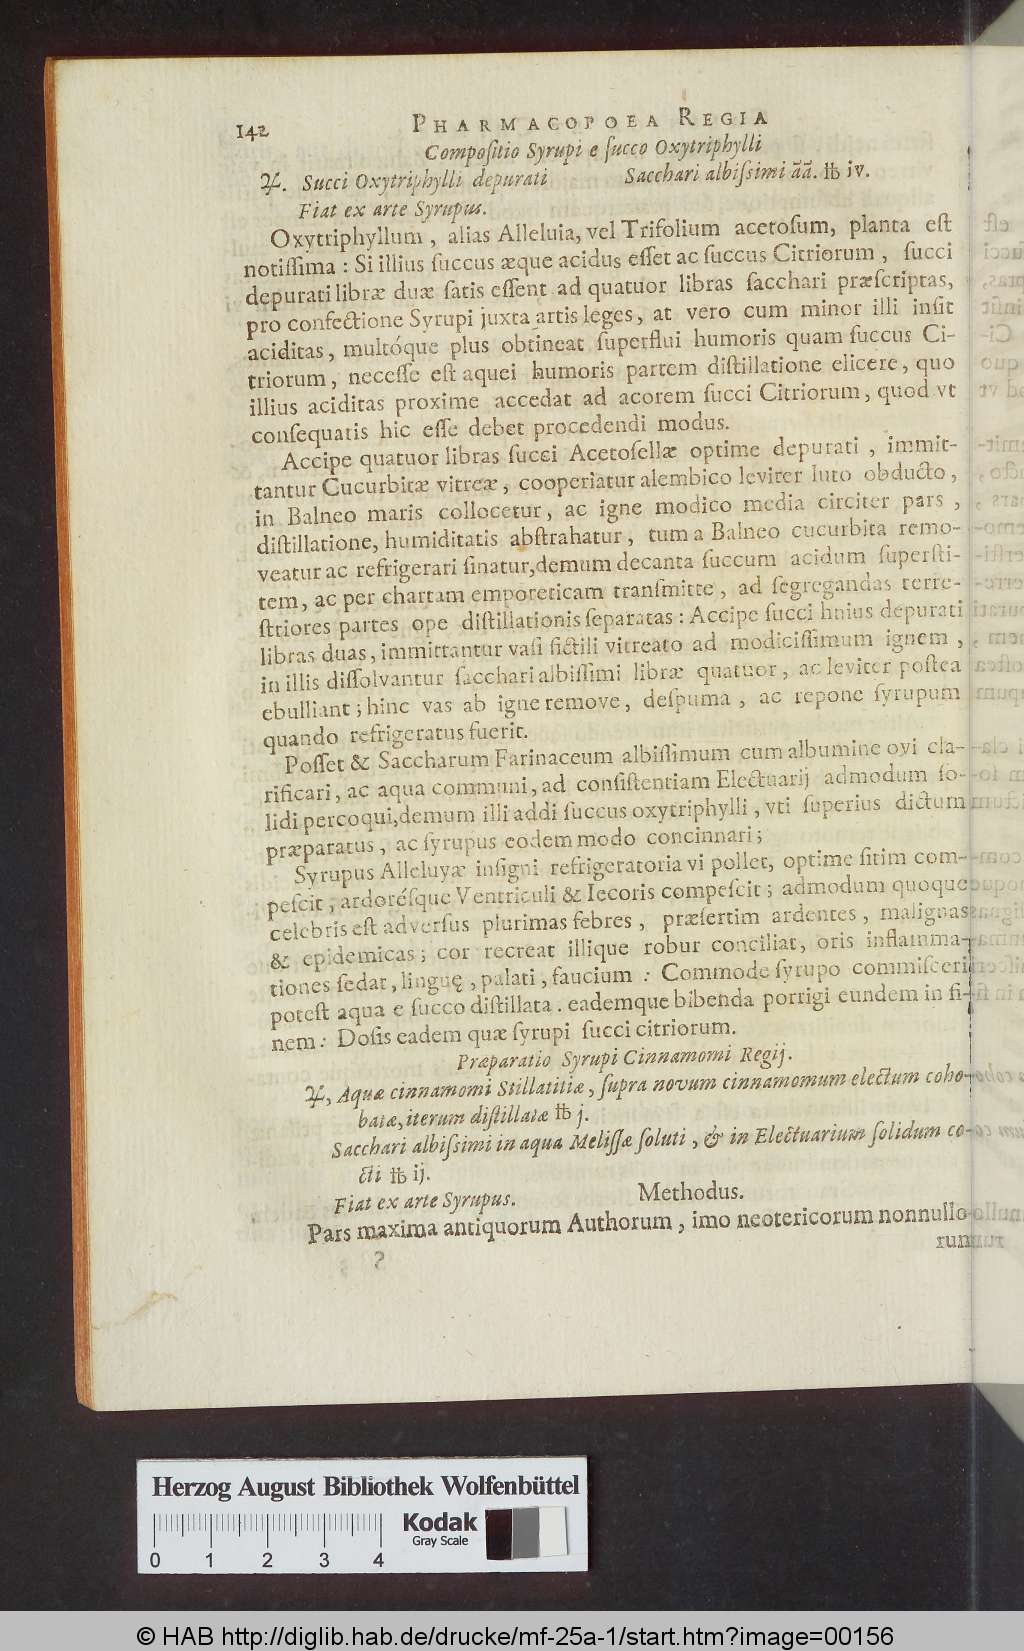 142 PHARMACOPOEA REGIA
Compoſitio Syrupi e ſucco Oxytriphylli
♃. Succi Oxytriphylli depurati Sacchari albiſsimi āā. ℔ iv.
Fiat ex arte Syrupus.
Oxytriphyllum, alias Alleluia, vel Trifolium acetoſum, planta eſt
notiſſima: Si illius ſuccus æque acidus eſſet ac ſuccus Citriorum, ſucci
depurati libræ duæ ſatis eſſent ad quatuor libras ſacchari præſcriptas,
pro confectione Syrupi juxta artis leges, at vero cum minor illi inſit
aciditas, multóque plus obtineat ſuperflui humoris quam ſuccus Ci-
triorum, neceſſe eſt aquei humoris partem diſtillatione elicere, quo
illius aciditas proxime accedat ad acorem ſucci Citriorum, quod vt
conſequatis hic eſſe debet procedendi modus.
Accipe quatuor libras ſucci Acetoſellæ optime depurati, immit-
tantur Cucurbitæ vitreæ, cooperiatur alembico leviter luto obducto,
in Balneo maris collocetur, ac igne modico media circiter pars,
diſtillatione, humiditatis abſtrahatur, tum a Balneo cucurbita remo-
veatur ac refrigerari ſinatur, demum decanta ſuccum acidum ſuperſti-
tem, ac per chartam emporeticam tranſmitte, ad ſegregandas terre-
ſtriores partes ope diſtillationis ſeparatas: Accipe ſucci huius depurati
libras duas, immittantur vaſi fictili vitreato ad modiciſſimum ignem,
in illis diſſolvantur ſacchari albiſſimi libræ quatuor, ac leviter poſtea
ebulliant; hinc vas ab igne remove, deſpuma, ac repone ſyrupum
quando refrigeratus fuerit.
Poſſet & Saccharum Farinaceum albiſſimum cum albumine ovi cla-
rificari, ac aqua communi, ad conſiſtentiam Electuarij admodum ſo-
lidi percoqui, demum illi addi ſuccus oxytriphylli, vti ſuperius dictum
præparatus, ac ſyrupus eodem modo concinnari;
Syrupus Alleluyæ inſigni refrigeratoria vi pollet, optime ſitim com-
peſcit, ardoréſque Ventriculi & Iecoris compeſcit; admodum quoque
celebris eſt adverſus plurimas febres, præſertim ardentes, malignas
& epidemicas; cor recreat illique robur conciliat, oris inflamma-
tiones ſedat, linguę, palati, faucium: Commode ſyrupo commiſceri
poteſt aqua e ſucco diſtillata. eademque bibenda porrigi eundem in fi-
nem: Doſis eadem quæ ſyrupi ſucci citriorum.
Præparatio Syrupi Cinnamomi Regij.
♃, Aquæ cinnamomi Stillatitiæ, ſupra novum cinnamomum electum coho-
batæ, iterum diſtillatæ ℔ j.
Sacchari albiſsimi in aqua Meliſſæ ſoluti, & in Electuarium ſolidum co-
cti ℔ ij.
Fiat ex arte Syrupus. Methodus.
Pars maxima antiquorum Authorum, imo neotericorum nonnullo
rum
Herzog August Bibliothek Wolfenbüttel
Kodak
Gray Scale
0 1 2 3 4
© HAB http://diglib.hab.de/drucke/mf-25a-1/start.htm?image=00156